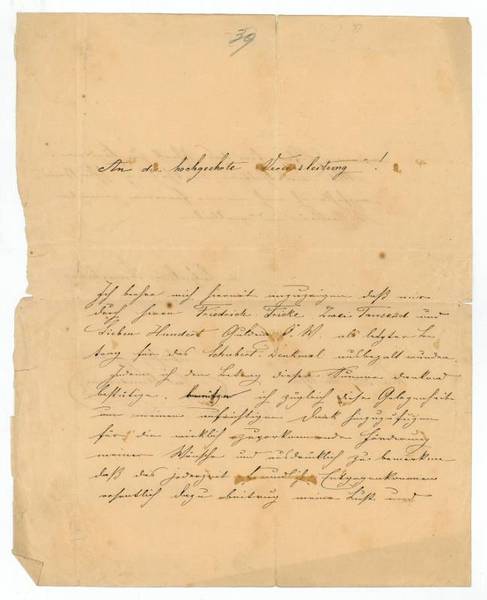 39
An die hochgeehrte Vereinsleitung!
Ich beehre mich hiermit anzuzeigen daß mir
durch Herrn Friedrich Fricke Zwei Tausend und
Sieben Hundert Gulden Ö. W. als letzter Be
trag für das Schubert-Denkmal ausbezalt wurden.
Indem ich den Betrag dieser Summe dankend
bestättige, benütze ich zugleich diese Gelegenheit
um meinen aufrichtigen Dank hinzuzufügen
für die wirklich zuvorkommende Förderung
meiner Wünsche und ausdrücklich zu bemerken
daß das jederzeit freundliche Entgegenkommen
wesentlich dazu beitrug meine Lust und